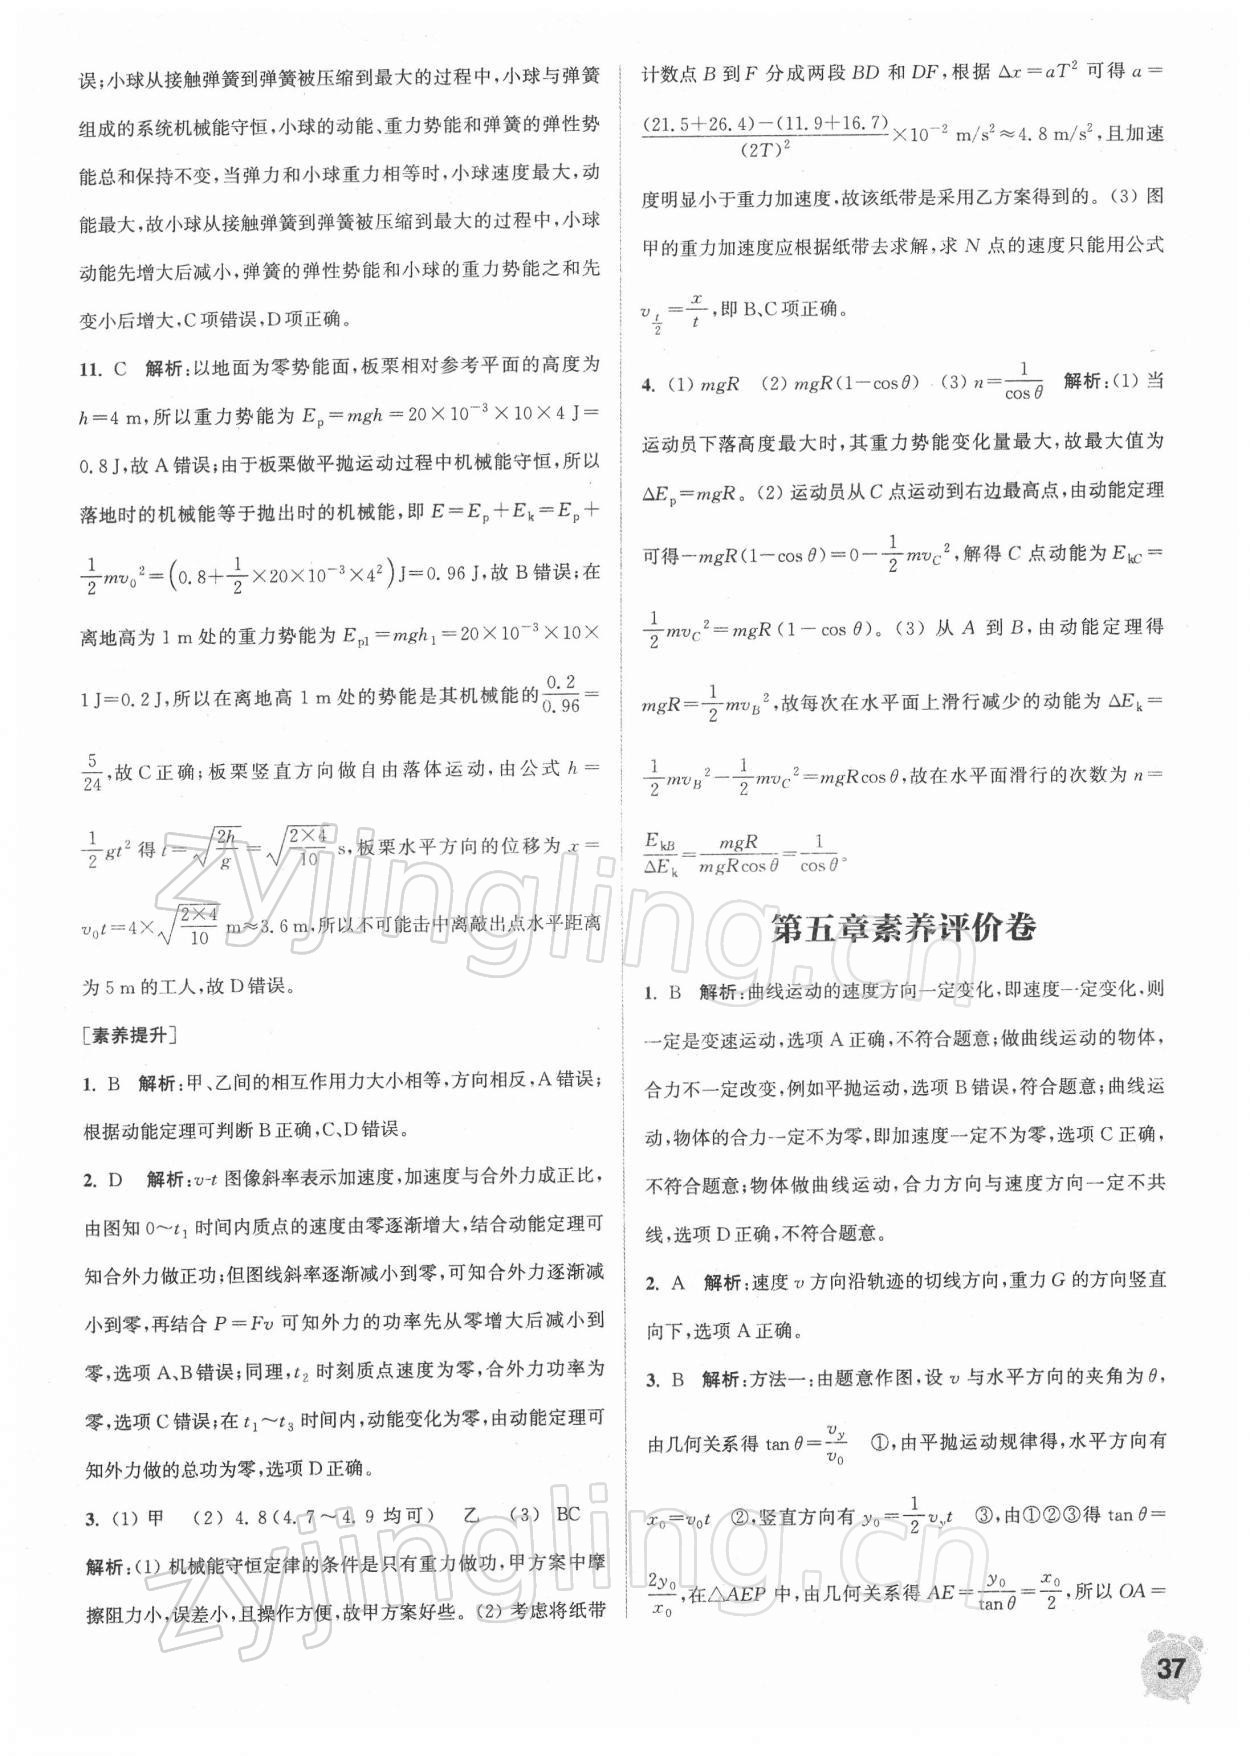 误;小球从接触弹簧到弹簧被压缩到最大的过程中,小球与弹簧
组成的系统机械能守恒,小球的动能、重力势能和弹簧的弹性势
能总和保持不变,当弹力和小球重力相等时,小球速度最大,动
能最大,故小球从接触弹簧到弹簧被压缩到最大的过程中,小球
动能先增大后减小,弹簧的弹性势能和小球的重力势能之和先
变小后增大,C项错误,D项正确。
11. C 解析:以地面为零势能面,板栗相对参考平面的高度为
h=4 m,所以重力势能为 Eₚ=mgh=20×10⁻³×10×4 J=
0.8 J,故 A 错误;由于板栗做平抛运动过程中机械能守恒,所以
落地时的机械能等于抛出时的机械能,即 E=Eₚ+Eₖ=Eₚ+
1/2 mv₀²=(0.8+1/2×20×10⁻³×4²)J=0.96 J,故 B 错误;在
离地高为 1 m 处的重力势能为 Eₚ₁=mgh₁=20×10⁻³×10×
1 J=0.2 J,所以在离地高 1 m 处的势能是其机械能的 0.2/0.96=
5/24,故 C 正确;板栗竖直方向做自由落体运动,由公式 h=
1/2 gt² 得 t=√(2h/g)=√(2×4/10) s,板栗水平方向的位移为 x=
v₀t=4×√(2×4/10) m≈3.6 m,所以不可能击中离敲出点水平距离
为 5 m 的工人,故 D 错误。
[素养提升]
1. B 解析:甲、乙间的相互作用力大小相等,方向相反,A 错误;
根据动能定理可判断 B 正确,C、D 错误。
2. D 解析:v-t 图像斜率表示加速度,加速度与合外力成正比,
由图知 0～t₁ 时间内质点的速度由零逐渐增大,结合动能定理可
知合外力做正功;但图线斜率逐渐减小到零,可知合外力逐渐减
小到零,再结合 P=Fv 可知外力的功率先从零增大后减小到
零,选项 A、B 错误;同理,t₂ 时刻质点速度为零,合外力功率为
零,选项 C 错误;在 t₁～t₃ 时间内,动能变化为零,由动能定理可
知外力做的总功为零,选项 D 正确。
3. (1) 甲 (2) 4.8(4.7～4.9 均可) 乙 (3) BC
解析:(1) 机械能守恒定律的条件是只有重力做功,甲方案中摩
擦阻力小,误差小,且操作方便,故甲方案好些。(2) 考虑将纸带
计数点 B 到 F 分成两段 BD 和 DF,根据 Δx=aT² 可得 a=
((21.5+26.4)−(11.9+16.7))/(2T)²×10⁻² m/s²≈4.8 m/s²,且加速
度明显小于重力加速度,故该纸带是采用乙方案得到的。(3) 图
甲的重力加速度应根据纸带去求解,求 N 点的速度只能用公式
v_(t/2)=x/t,即 B、C 项正确。
4. (1) mgR (2) mgR(1−cosθ) (3) n=1/cosθ 解析:(1) 当
运动员下落高度最大时,其重力势能变化量最大,故最大值为
ΔEₚ=mgR。(2) 运动员从 C 点运动到右边最高点,由动能定理
可得−mgR(1−cosθ)=0−1/2 mv_C²,解得 C 点动能为 E_kC=
1/2 mv_C²=mgR(1−cosθ)。(3) 从 A 到 B,由动能定理得
mgR=1/2 mv_B²,故每次在水平面上滑行减少的动能为 ΔEₖ=
1/2 mv_B²−1/2 mv_C²=mgRcosθ,故在水平面滑行的次数为 n=
E_kB/ΔEₖ=mgR/(mgRcosθ)=1/cosθ。
第五章素养评价卷
1. B 解析:曲线运动的速度方向一定变化,即速度一定变化,则
一定是变速运动,选项 A 正确,不符合题意;做曲线运动的物体,
合力不一定改变,例如平抛运动,选项 B 错误,符合题意;曲线运
动,物体的合力一定不为零,即加速度一定不为零,选项 C 正确,
不符合题意;物体做曲线运动,合力方向与速度方向一定不共
线,选项 D 正确,不符合题意。
2. A 解析:速度 v 方向沿轨迹的切线方向,重力 G 的方向竖直
向下,选项 A 正确。
3. B 解析:方法一:由题意作图,设 v 与水平方向的夹角为 θ,
由几何关系得 tanθ=v_y/v₀ ①,由平抛运动规律得,水平方向有
x₀=v₀t ②,竖直方向有 y₀=1/2 v_y t ③,由①②③得 tanθ=
2y₀/x₀,在△AEP 中,由几何关系得 AE=y₀/tanθ=x₀/2,所以 OA=
37
zyjingling.cn
zyjingling.cn